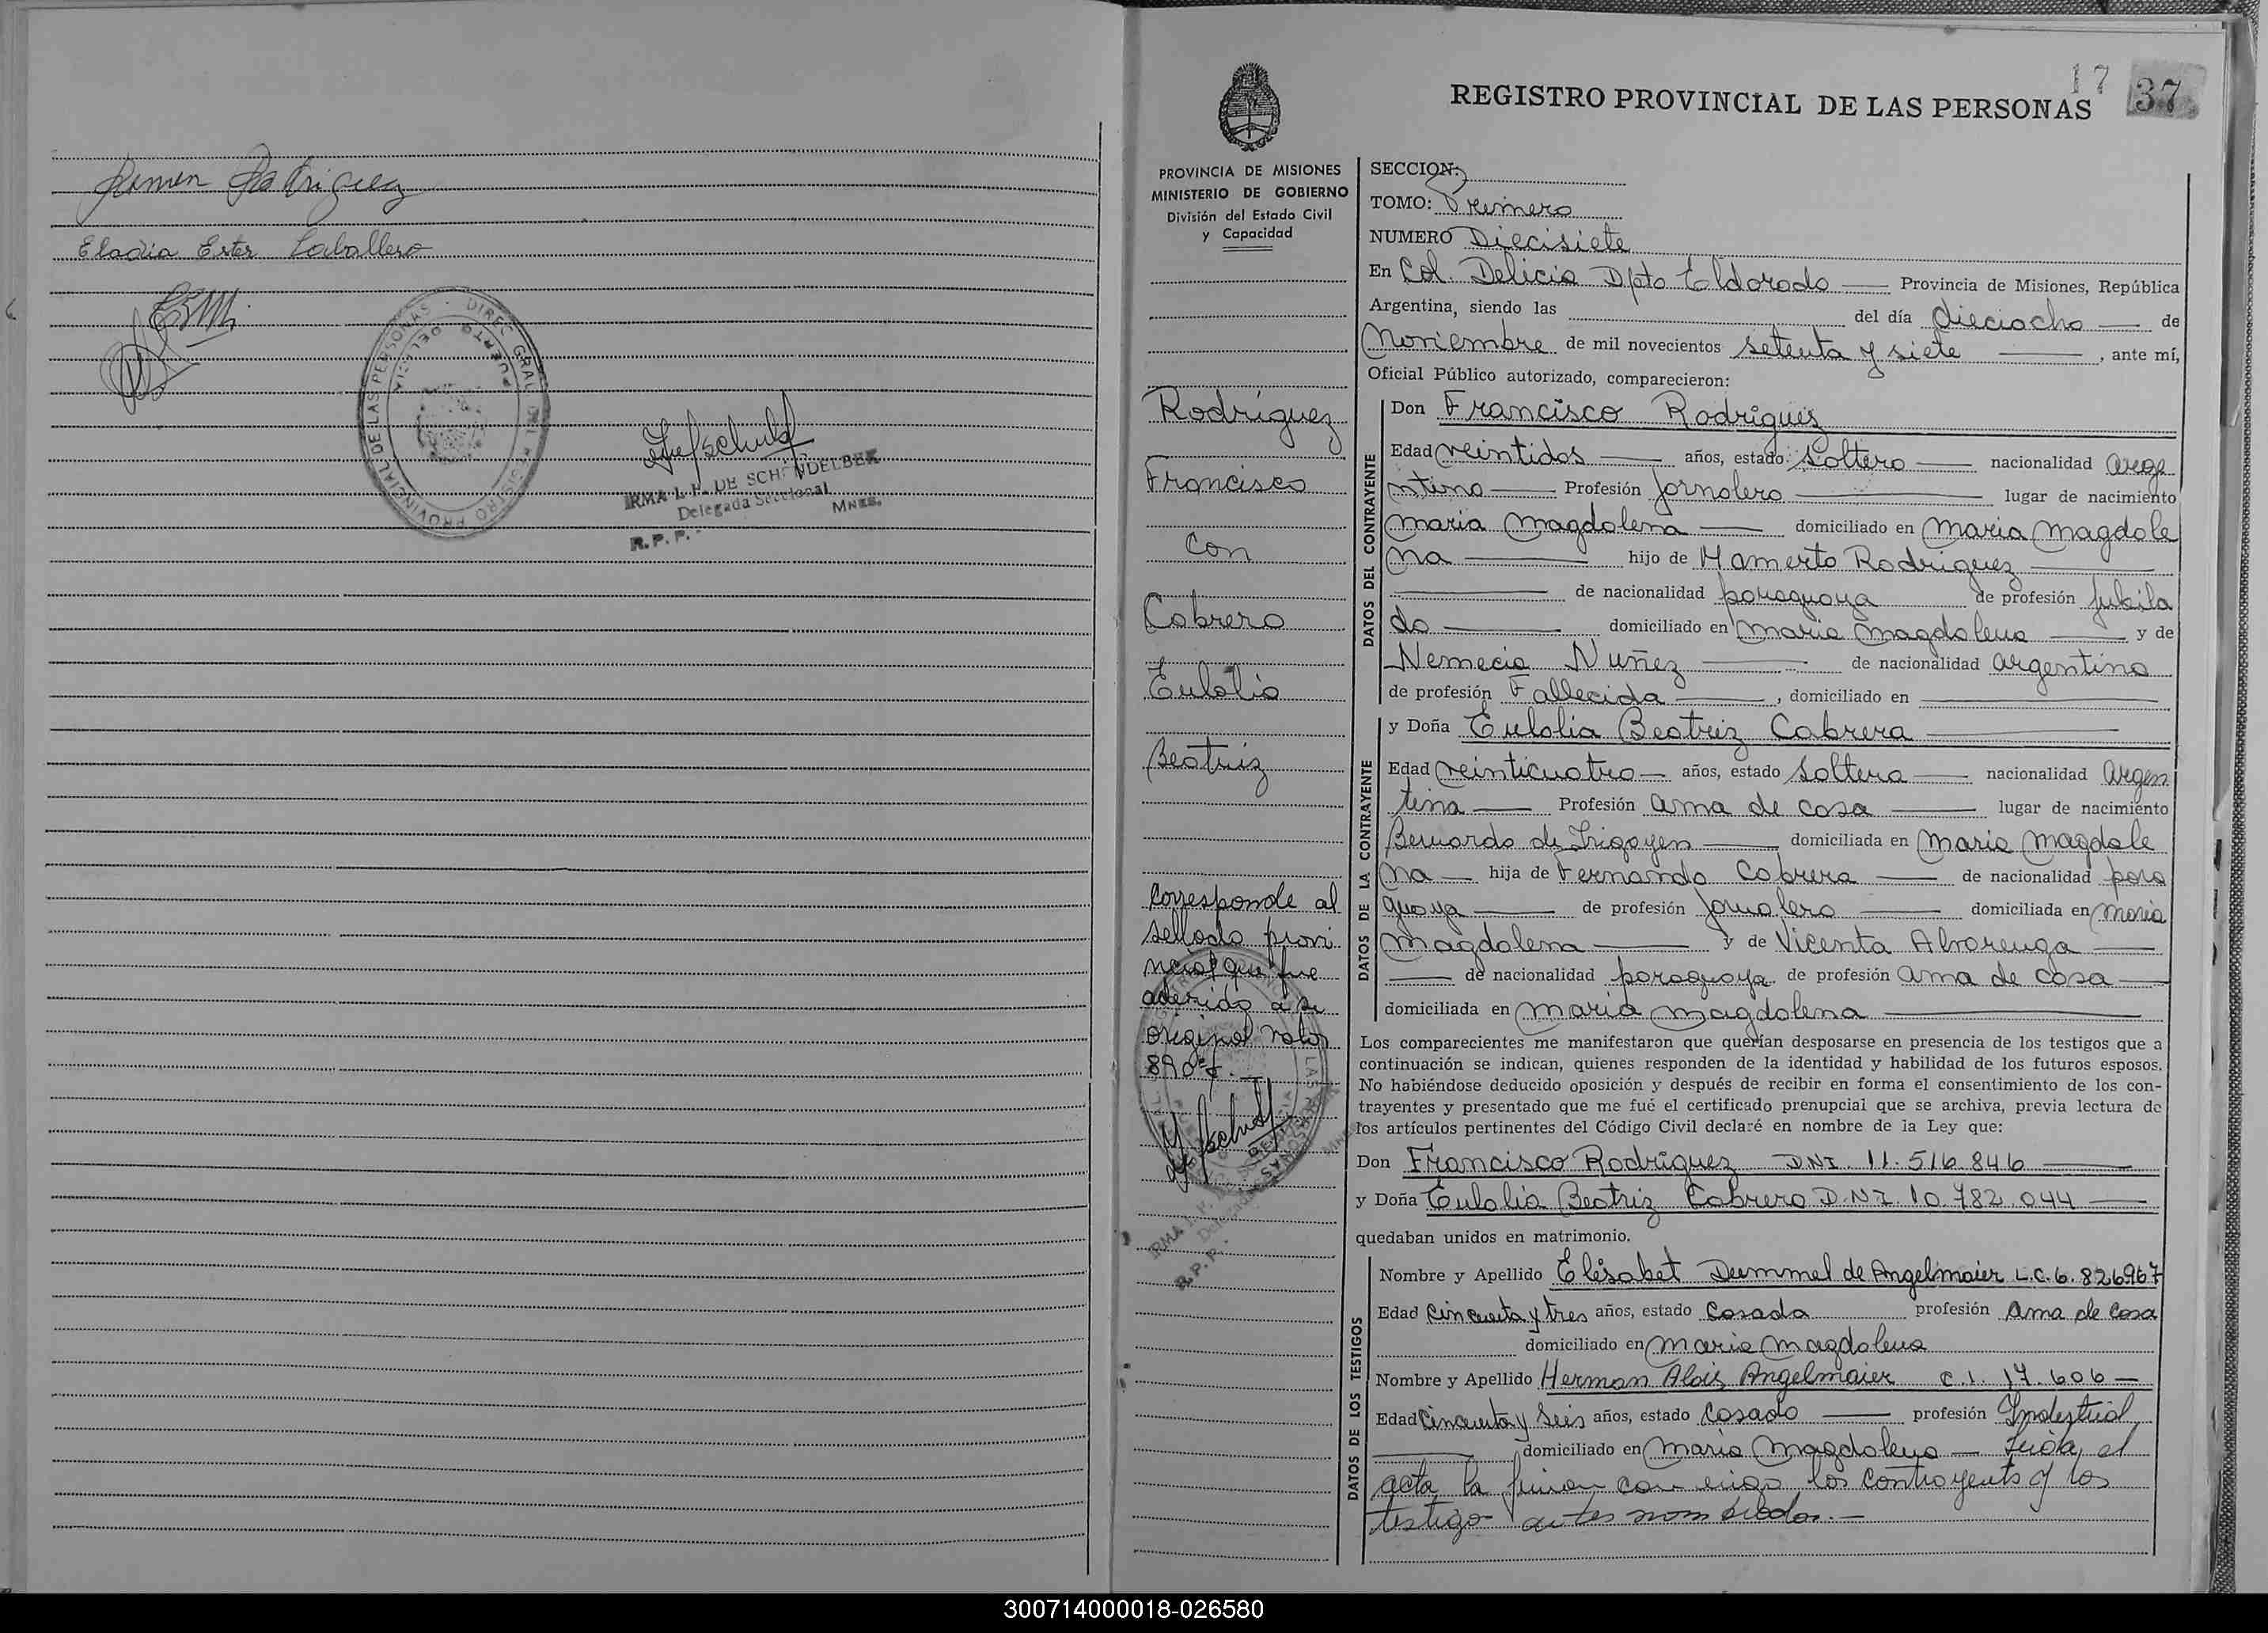 Ramon Rodriguez
Eladia Ester Caballero
DIREC. GRAL. DEL REGISTRO PROVINCIAL DE LAS PERSONAS
PUERTO DELICIA
IRMA I. H. DE SCHINDELBEK
Delegada Seccional
R. P. P. - MNES.
17 37
REGISTRO PROVINCIAL DE LAS PERSONAS
PROVINCIA DE MISIONES
MINISTERIO DE GOBIERNO
División del Estado Civil
y Capacidad
Rodríguez
Francisco
con
Cabrera
Eulalia
Beatriz
Corresponde al
sellado provi
ncial que fue
aderido a su
original valor
890
IRMA I. H.
R. P. P.
SECCION:
TOMO: Primero
NUMERO Diecisiete
En Col. Delicia Dpto Eldorado — Provincia de Misiones, República
Argentina, siendo las del día dieciocho — de
Noviembre de mil novecientos setenta y siete — , ante mí,
Oficial Público autorizado, comparecieron:
DATOS DEL CONTRAYENTE
Don Francisco Rodríguez
Edad veintidos — años, estado soltero — nacionalidad arge
ntina — Profesión Jornalero — lugar de nacimiento
Maria Magdalena — domiciliado en Maria Magdale
na — hijo de Mamerto Rodriguez —
— de nacionalidad paraguaya de profesión Jubila
do — domiciliado en Maria Magdalena — y de
Nemecia Nuñez — de nacionalidad argentina
de profesión Fallecida — , domiciliado en —
DATOS DE LA CONTRAYENTE
y Doña Eulalia Beatriz Cabrera —
Edad veinticuatro — años, estado soltera — nacionalidad argen
tina — Profesión ama de casa — lugar de nacimiento
Bernardo de Irigoyen — domiciliada en Maria Magdale
na — hija de Fernando Cabrera — de nacionalidad para
guaya — de profesión Jornalero — domiciliada en Maria
Magdalena — y de Vicenta Alvarenga —
— de nacionalidad paraguaya de profesión ama de casa —
domiciliada en Maria Magdalena —
Los comparecientes me manifestaron que querían desposarse en presencia de los testigos que a
continuación se indican, quienes responden de la identidad y habilidad de los futuros esposos.
No habiéndose deducido oposición y después de recibir en forma el consentimiento de los con-
trayentes y presentado que me fué el certificado prenupcial que se archiva, previa lectura de
los artículos pertinentes del Código Civil declaré en nombre de la Ley que:
Don Francisco Rodríguez D.N.I. 11.516.846 —
y Doña Eulalia Beatriz Cabrera D.N.I. 10.782.044 —
quedaban unidos en matrimonio.
DATOS DE LOS TESTIGOS
Nombre y Apellido Elisabet Dummel de Angelmaier L.C. 6.826967
Edad Cincuenta y tres años, estado Casada profesión ama de casa
domiciliado en Maria Magdalena
Nombre y Apellido Herman Alois Angelmaier C.I. 17.606 —
Edad Cincuenta y Seis años, estado Casado — profesión Industrial
— domiciliado en Maria Magdalena — Leída el
acta la firman conmigo los contrayents y los
testigo antes nombrados. —
300714000018-026580